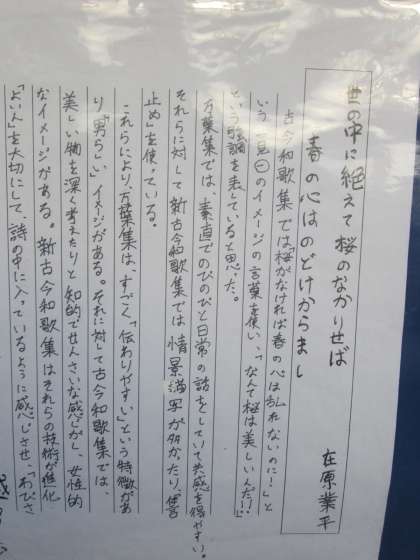 世の中に絶えて桜のなかりせば
春の心はのどけからまし
在原業平
古今和歌集では桜がなければ春の心は乱れないのに…」と
いう一見㊀のイメージの言葉を使い、「なんて桜は美しいんだ!!」
という強調を表していると思った。
万葉集では、素直でのびのびと日常の話をしていて共感を得やすい。
それらに対して新古今和歌集では情景描写が多かったり、体言
止め」を使っている。
これらにより、万葉集は、すごく「伝わりやすい」という特徴があ
り「男らしい」イメージがある。それに対して古今和歌集では、
美しい物を深く考えたりと知的でせんさいな感じがし、女性的
なイメージがある。新古今和歌集はそれらの技術が進化
「よいん」を大切にして、詩の中に入っているように感じさせ、「わびさ